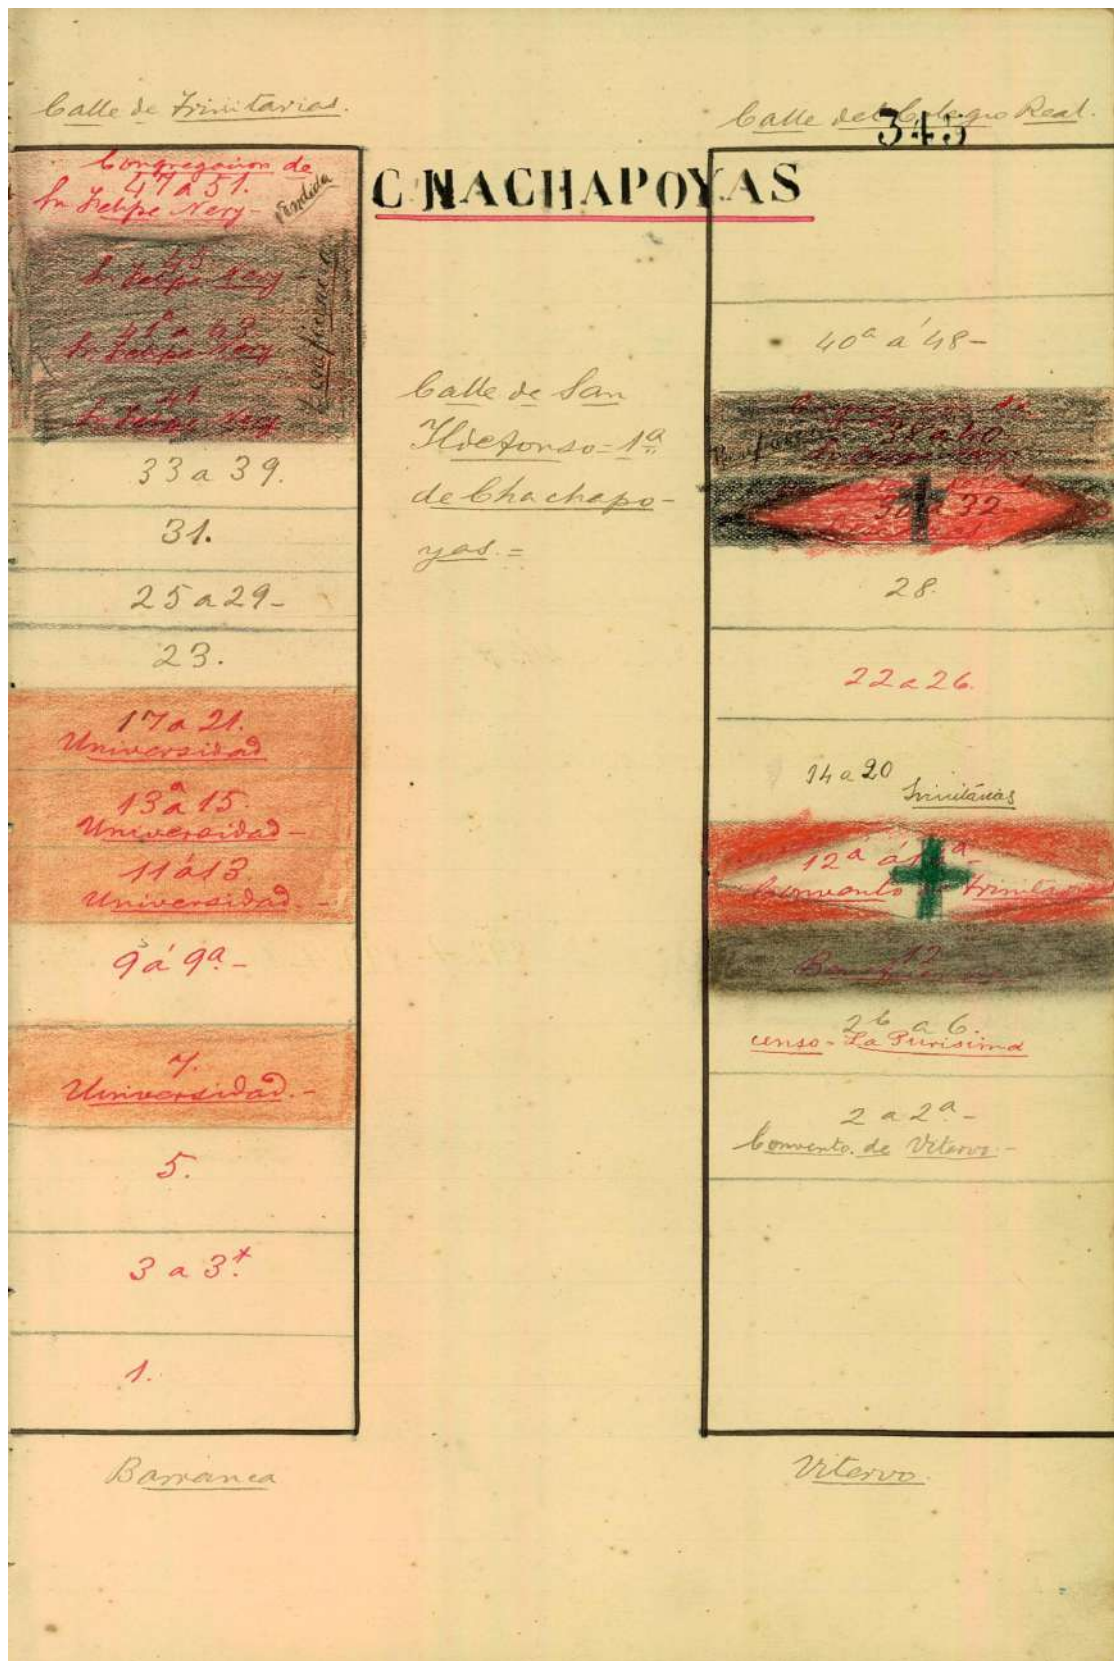 Calle de Trinitarias.
Calle del Colegio Real.
343
CHACHAPOYAS
Congregacion de
47 a 51.
Sn Felipe Nery-
Vendida
45
Sn Felipe Nery-
41ª a 43
Sn Felipe Nery
41
Sn Felipe Nery
Beneficencia
33 a 39.
31.
25 a 29-
23.
17 a 21.
Universidad
13ª a 15.
Universidad-
11 á 13.
Universidad.-
9 á 9ª-
7.
Universidad.-
5.
3 a 3ª.
1.
Barranca
Calle de San
Ildefonso=1ª
de Chachapo-
yas.=
40ª á 48-
Congregacion de
38 a 40
30 a 32-
28.
22 a 26.
14 a 20
Trinitarias
12ª á
Convento Trinitarias
12
Beneficencia
2b a 6.
censo-La Purisima
2 a 2ª-
Convento. de Vitervo.-
Vitervo.